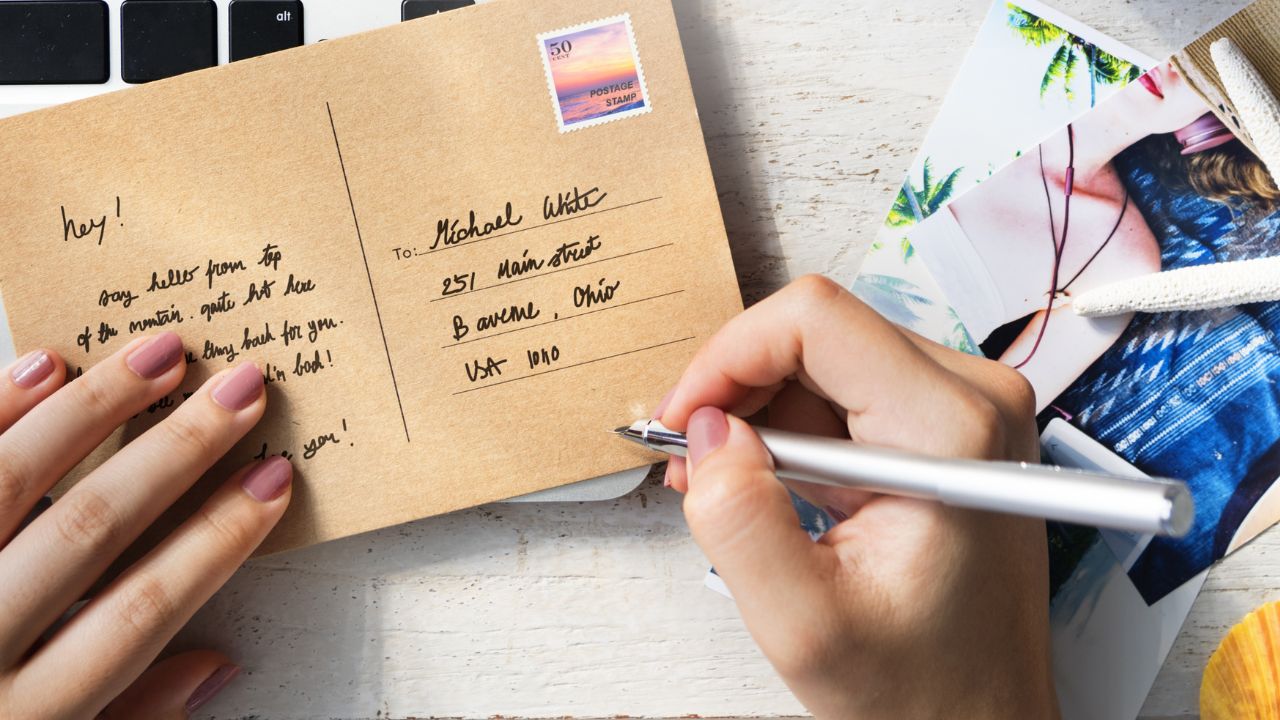 alt
50
CENT
POSTAGE
STAMP
hey!
say hello from top
of the montain. quite hot here
thing back for you.
bad!
you!
To: Michael White
251 Main street
B avenue, Ohio
USA 1010